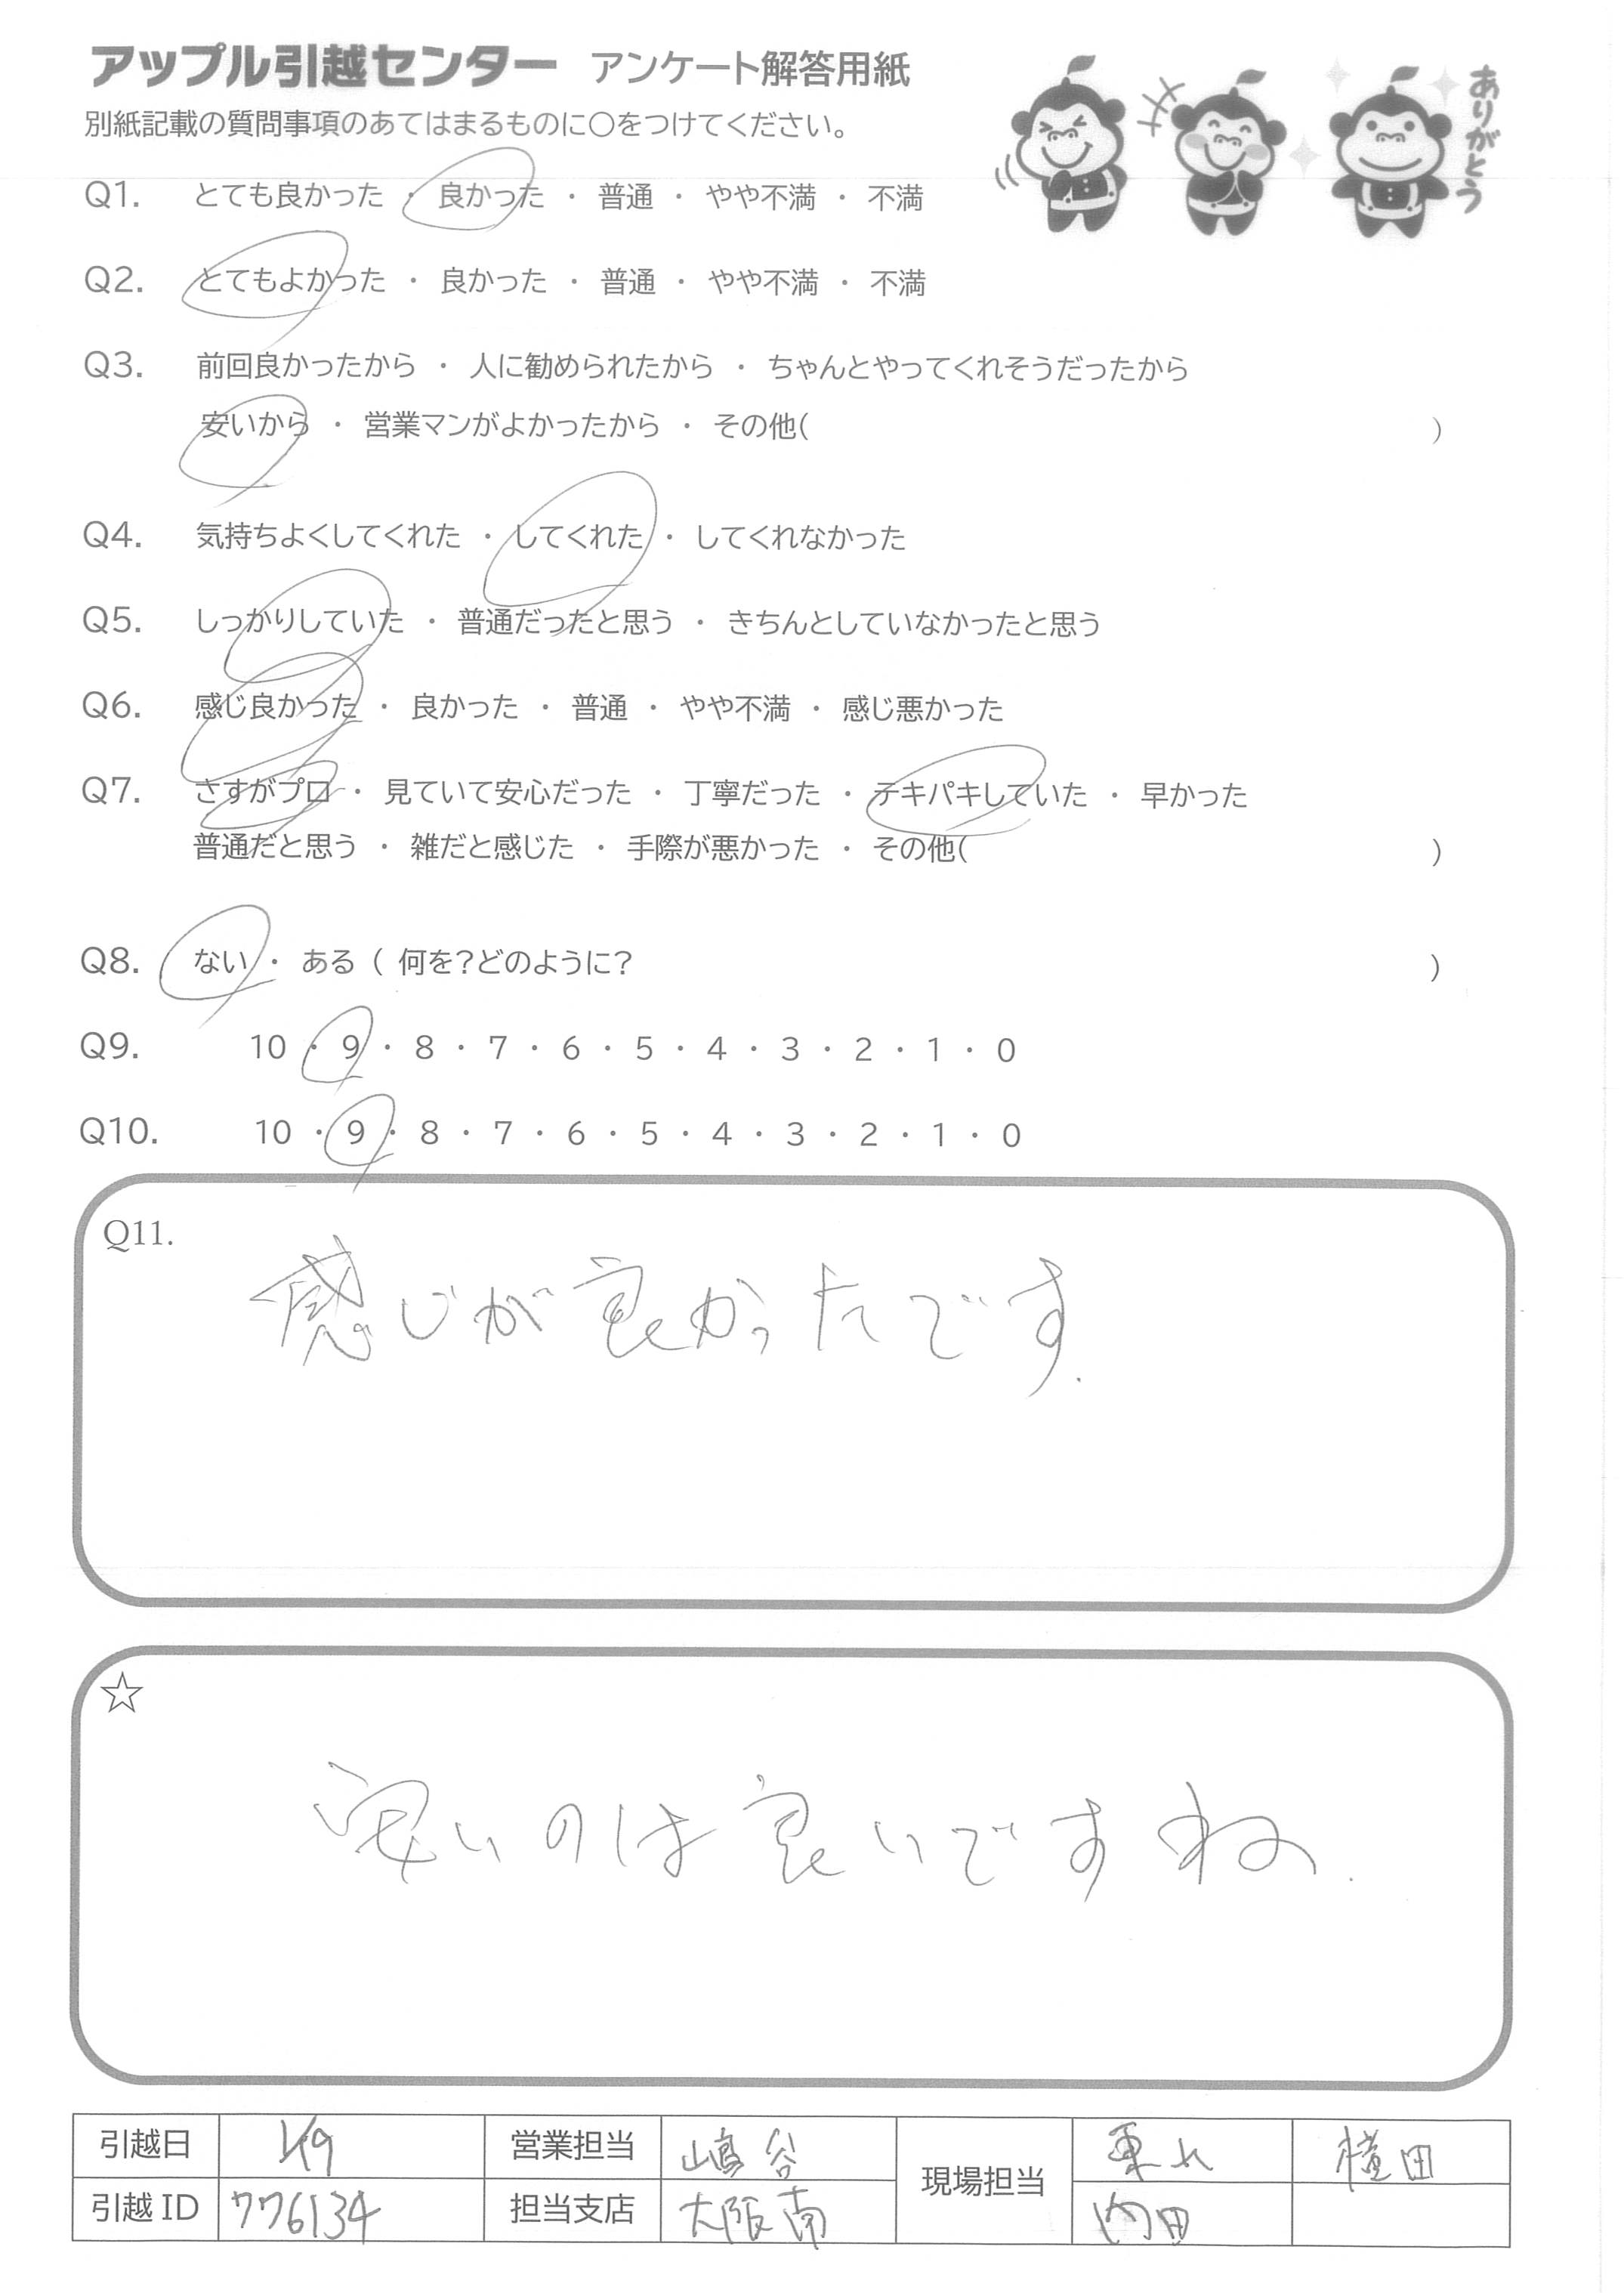 アップル引越センター アンケート解答用紙
別紙記載の質問事項のあてはまるものに〇をつけてください。
ありがとう
Q1. とても良かった ・ 良かった ・ 普通 ・ やや不満 ・ 不満
Q2. とてもよかった ・ 良かった ・ 普通 ・ やや不満 ・ 不満
Q3. 前回良かったから ・ 人に勧められたから ・ ちゃんとやってくれそうだったから
安いから ・ 営業マンがよかったから ・ その他( )
Q4. 気持ちよくしてくれた ・ してくれた ・ してくれなかった
Q5. しっかりしていた ・ 普通だったと思う ・ きちんとしていなかったと思う
Q6. 感じ良かった ・ 良かった ・ 普通 ・ やや不満 ・ 感じ悪かった
Q7. さすがプロ ・ 見ていて安心だった ・ 丁寧だった ・ テキパキしていた ・ 早かった
普通だと思う ・ 雑だと感じた ・ 手際が悪かった ・ その他( )
Q8. ない ・ ある ( 何を?どのように? )
Q9. 10 ・ 9 ・ 8 ・ 7 ・ 6 ・ 5 ・ 4 ・ 3 ・ 2 ・ 1 ・ 0
Q10. 10 ・ 9 ・ 8 ・ 7 ・ 6 ・ 5 ・ 4 ・ 3 ・ 2 ・ 1 ・ 0
Q11.
感じが良かったです.
☆
安いのは良いですね.
引越日 営業担当 嶋谷 現場担当 横田
引越ID 776134 担当支店 大阪南 内田